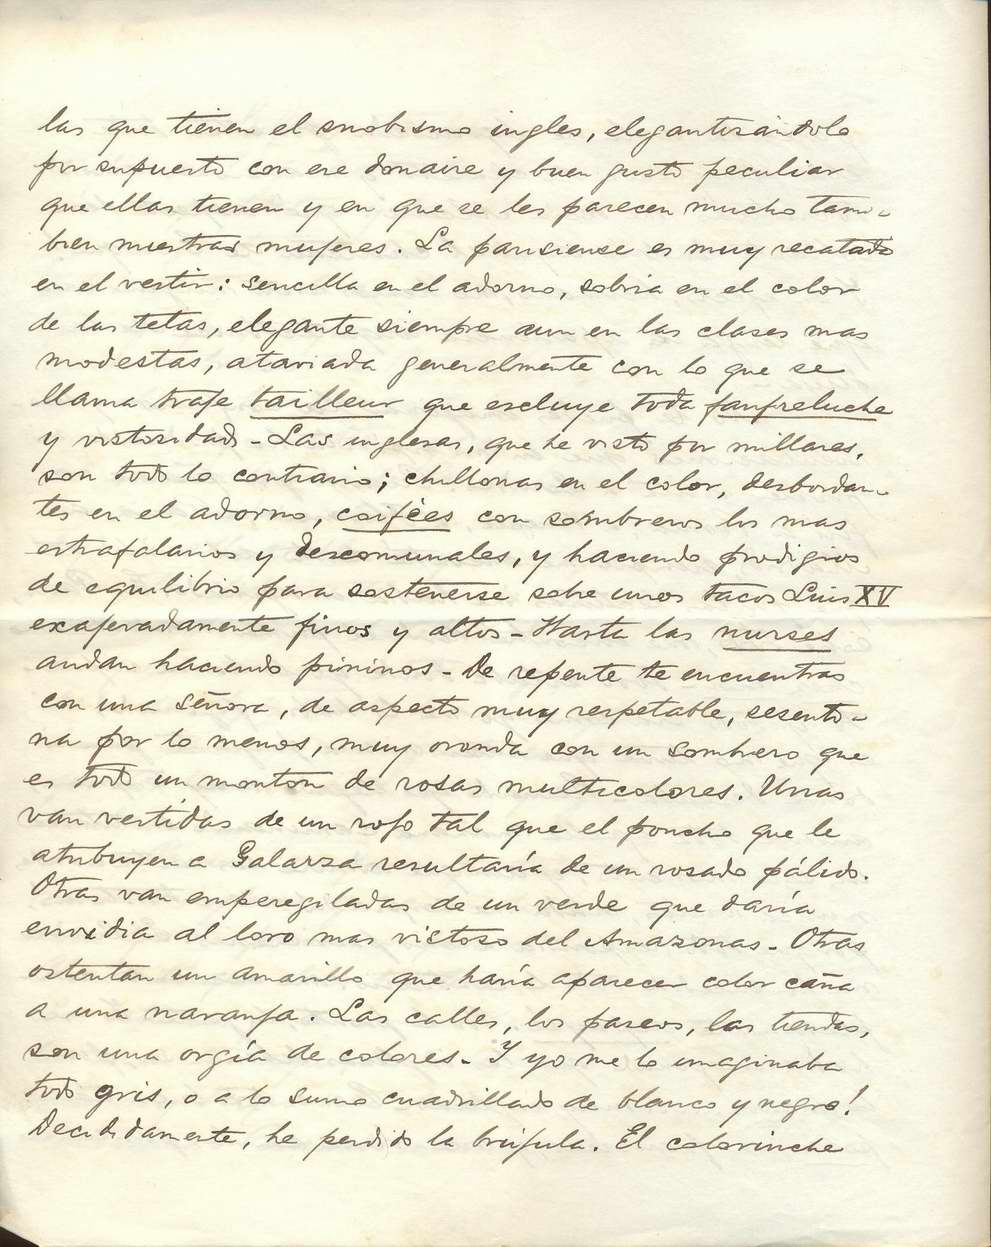 las que tienen el snobismo ingles, elegantizándolo
por supuesto con ese donaire y buen gusto peculiar
que ellas tienen y en que se les parecen mucho tam-
bien nuestras mujeres. La parisiense es muy recatada
en el vestir: sencilla en el adorno, sobria en el color
de las telas, elegante siempre aun en las clases mas
modestas, ataviada generalmente con lo que se
llama traje tailleur que escluye toda fanfreluche
y vistosidad - Las inglesas, que he visto por millares,
son todo lo contrario; chillonas en el color, desbordan-
tes en el adorno, coifées con sombreros los mas
estrafalarios y descomunales, y haciendo prodigios
de equilibrio para sostenerse sobre unos tacos Luis XV
exajeradamente finos y altos - Hasta las nurses
andan haciendo pininos - De repente te encuentras
con una señora, de aspecto muy respetable, sesento-
na por lo menos, muy oronda con un sombrero que
es todo un monton de rosas multicolores. Unas
van vestidas de un rojo tal que el poncho que le
atribuyen a Galarza resultaría de un rosado pálido.
Otras van emperegiladas de un verde que daría
envidia al loro mas vistoso del Amazonas - Otras
ostentan un amarillo que haría aparecer color caña
a una naranja. Las calles, los paseos, las tiendas,
son una orgía de colores - Y yo me lo imaginaba
todo gris, o a lo sumo cuadrillado de blanco y negro!
Decididamente, he perdido la brújula. El colorinche